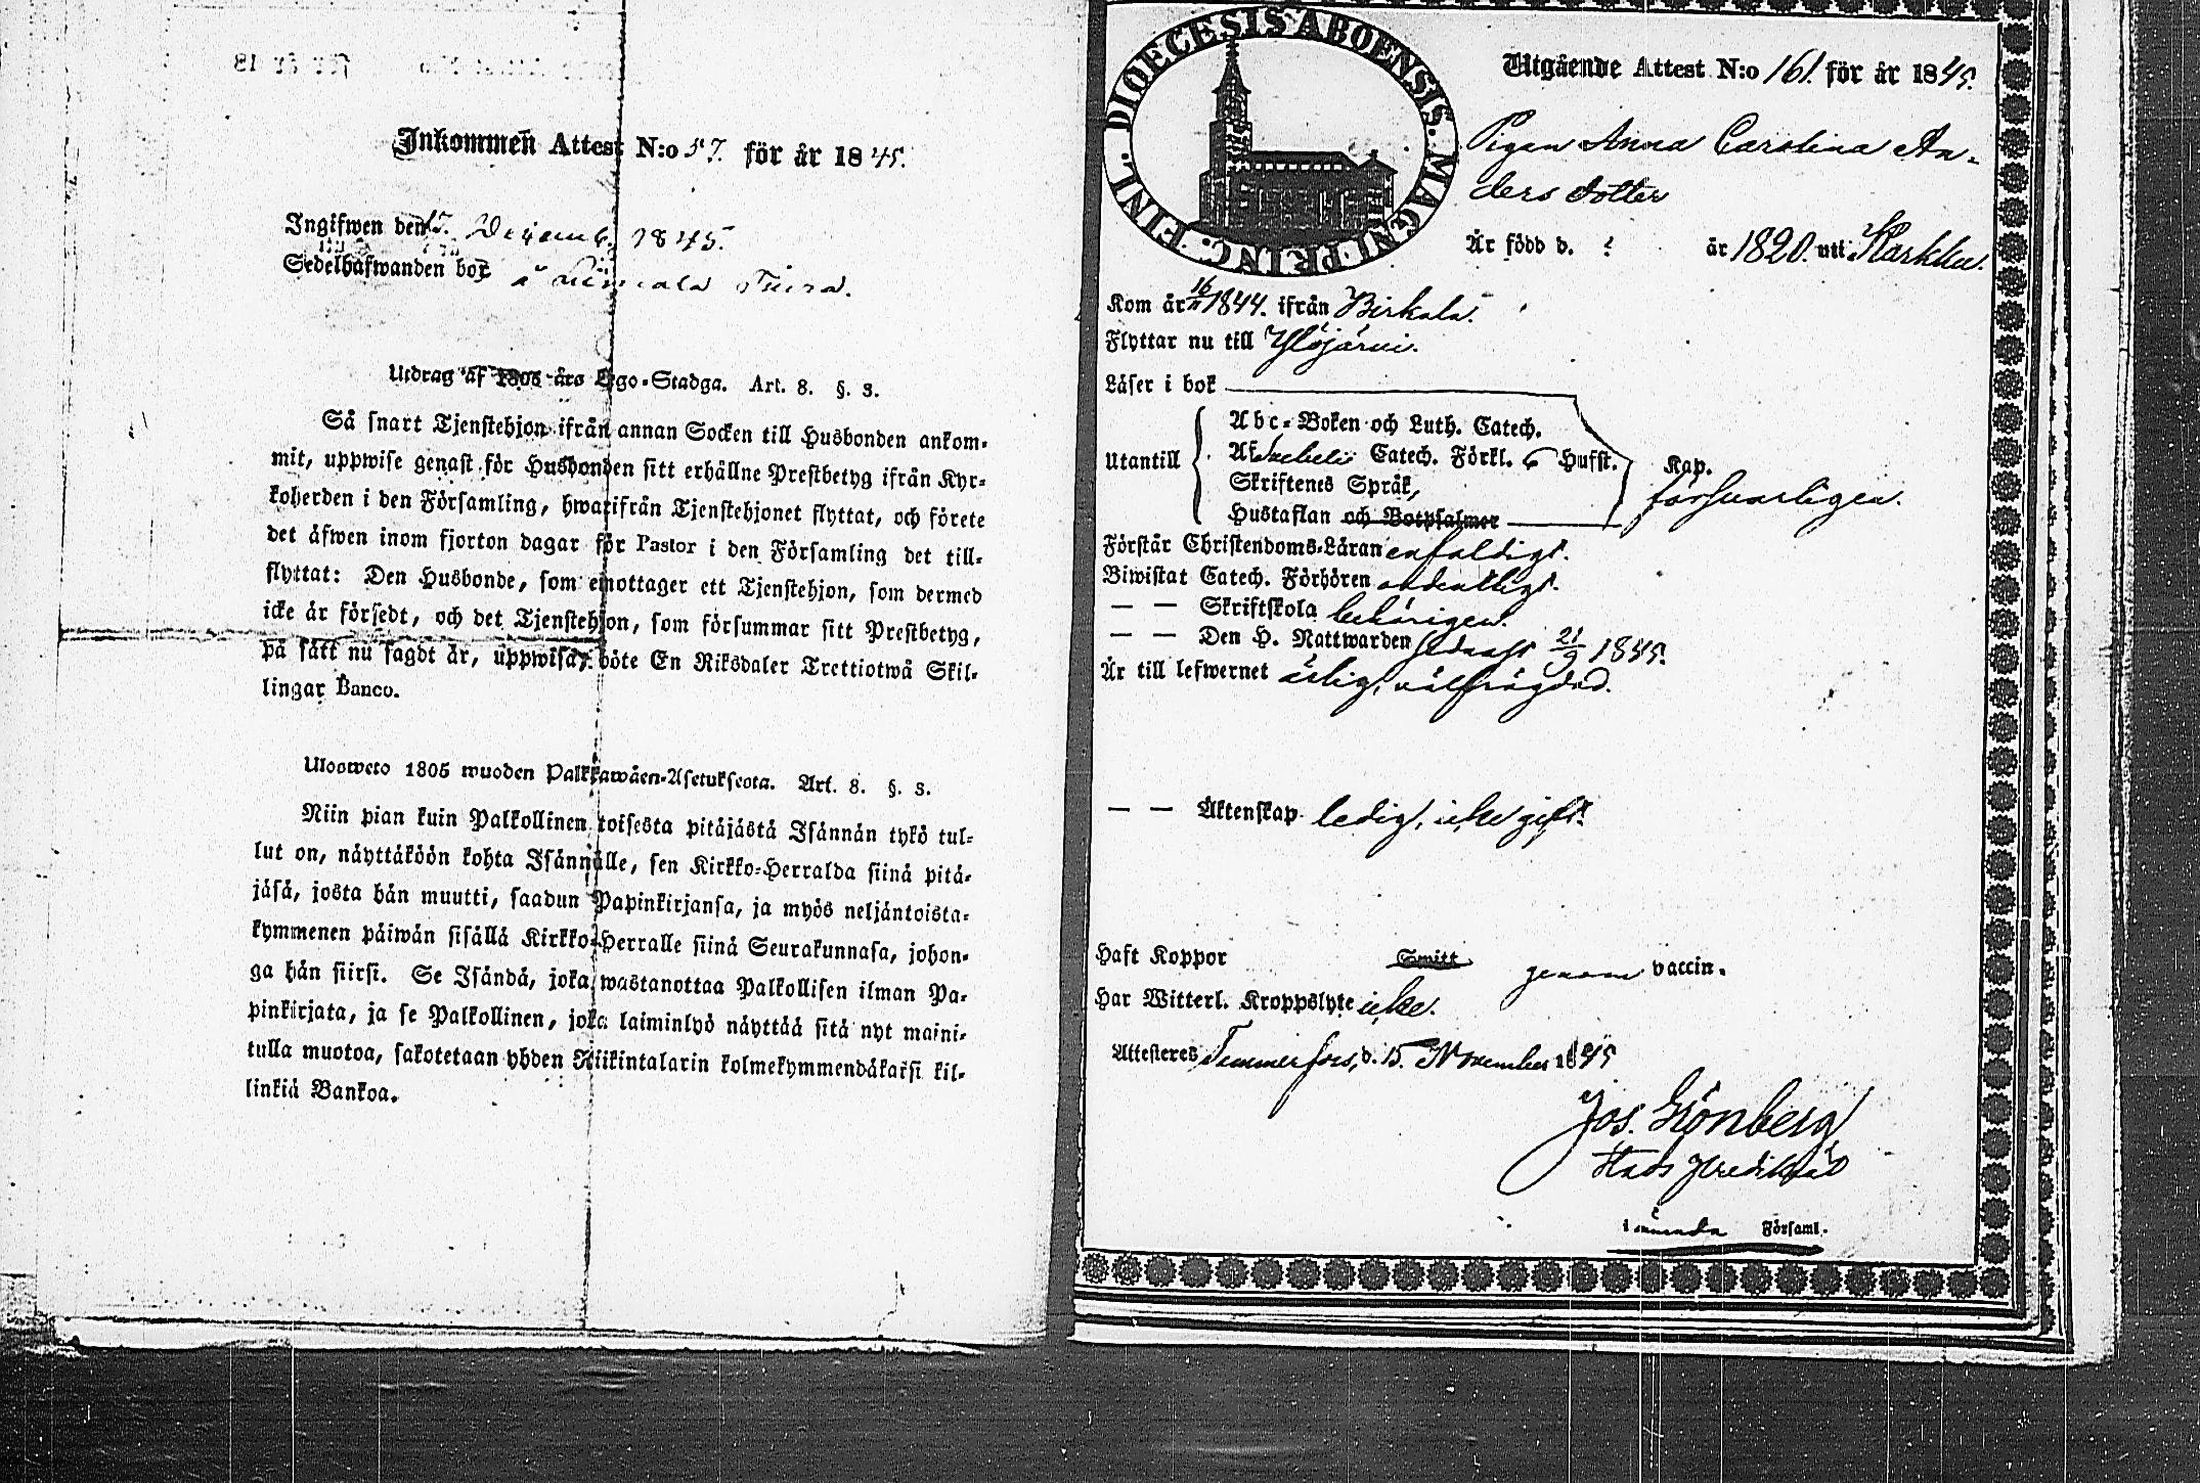 Inkommen Attest N:o 57. för år 1845.
Ingifwen den 15. Decemb. 1845.
Sedelhafwanden bor å
Utdrag af 1805 års Lego-Stadga. Art. 8. §. 3.
Så snart Tjenstehjon ifrån annan Socken till Husbonden ankom-
mit, uppwise genast för Husbonden sitt erhållne Prestbetyg ifrån Kyr-
koherden i den Församling, hwarifrån Tjenstehjonet flyttat, och förete
det äfwen inom fjorton dagar för Pastor i den Församling det till-
flyttat: Den Husbonde, som emottager ett Tjenstehjon, som dermed
icke är försedt, och det Tjenstehjon, som försummar sitt Prestbetyg,
på sätt nu sagdt är, uppwisa, böte En Riksdaler Trettiotwå Skil-
lingar Banco.
Ulosweto 1805 wuoden Palkkawäen-Asetuksesta. Art. 8. §. 3.
Niin pian kuin Palkollinen toisesta pitäjästä Isännän tykö tul-
lut on, näyttäköön kohta Isännälle, sen Kirkko-Herralda siinä pitä-
jäsä, josta hän muutti, saadun Papinkirjansa, ja myös neljäntoista-
kymmenen päiwän sisällä Kirkko-Herralle siinä Seurakunnasa, johon-
ga hän siirsi. Se Isändä, joka wastanottaa Palkollisen ilman Pa-
pinkirjata, ja se Palkollinen, joka laiminlyö näyttää sitä nyt maini-
tulla muotoa, sakotetaan yhden Riikintalarin kolmekymmendäkaksi kil-
linkiä Bankoa.
DIOECESIS ABOENSIS. MAGNI PRINC. FINL.
Utgående Attest N:o 161. för år 1845.
Pigan Anna Carolina An-
ders dotter
Är född d. ? år 1820. uti Karkku.
Kom år 16/11 1844. ifrån Birkala.
Flyttar nu till Ylöjärvi.
Läser i bok
Abc-Boken och Luth. Catech.
Utantill Af Catech. Förkl. Hufst. Kap.
Skriftenes Språk, försvarligen.
Hustaflan och Botpsalmer
Förstår Christendoms-Läran enfaldigt.
Biwistat Catech. Förhören ordentligt.
— — Skriftskola behörigen.
— — Den H. Nattwarden sednast 21/9 1845.
Är till lefwernet ärlig, välfrägdad.
— — Äktenskap ledig, icke gift.
Haft Koppor Smitt genom vaccin.
Har Witterl. Kroppslyte icke.
Attesteres Tammerfors, d. 15. November 1845
Jos. Grönberg
Stads Predikant
i Församl.